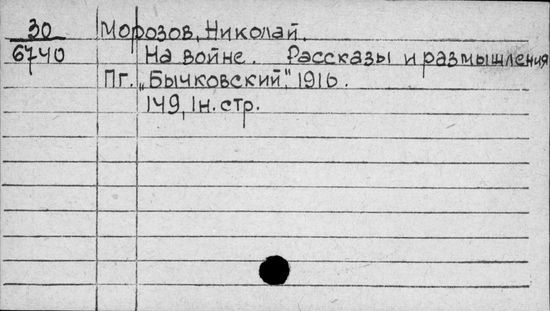 30 Морозов, Николай.
6740 На войне. Рассказы и размышления
Пг. „Бычковский", 1916.
149, 1н. стр.